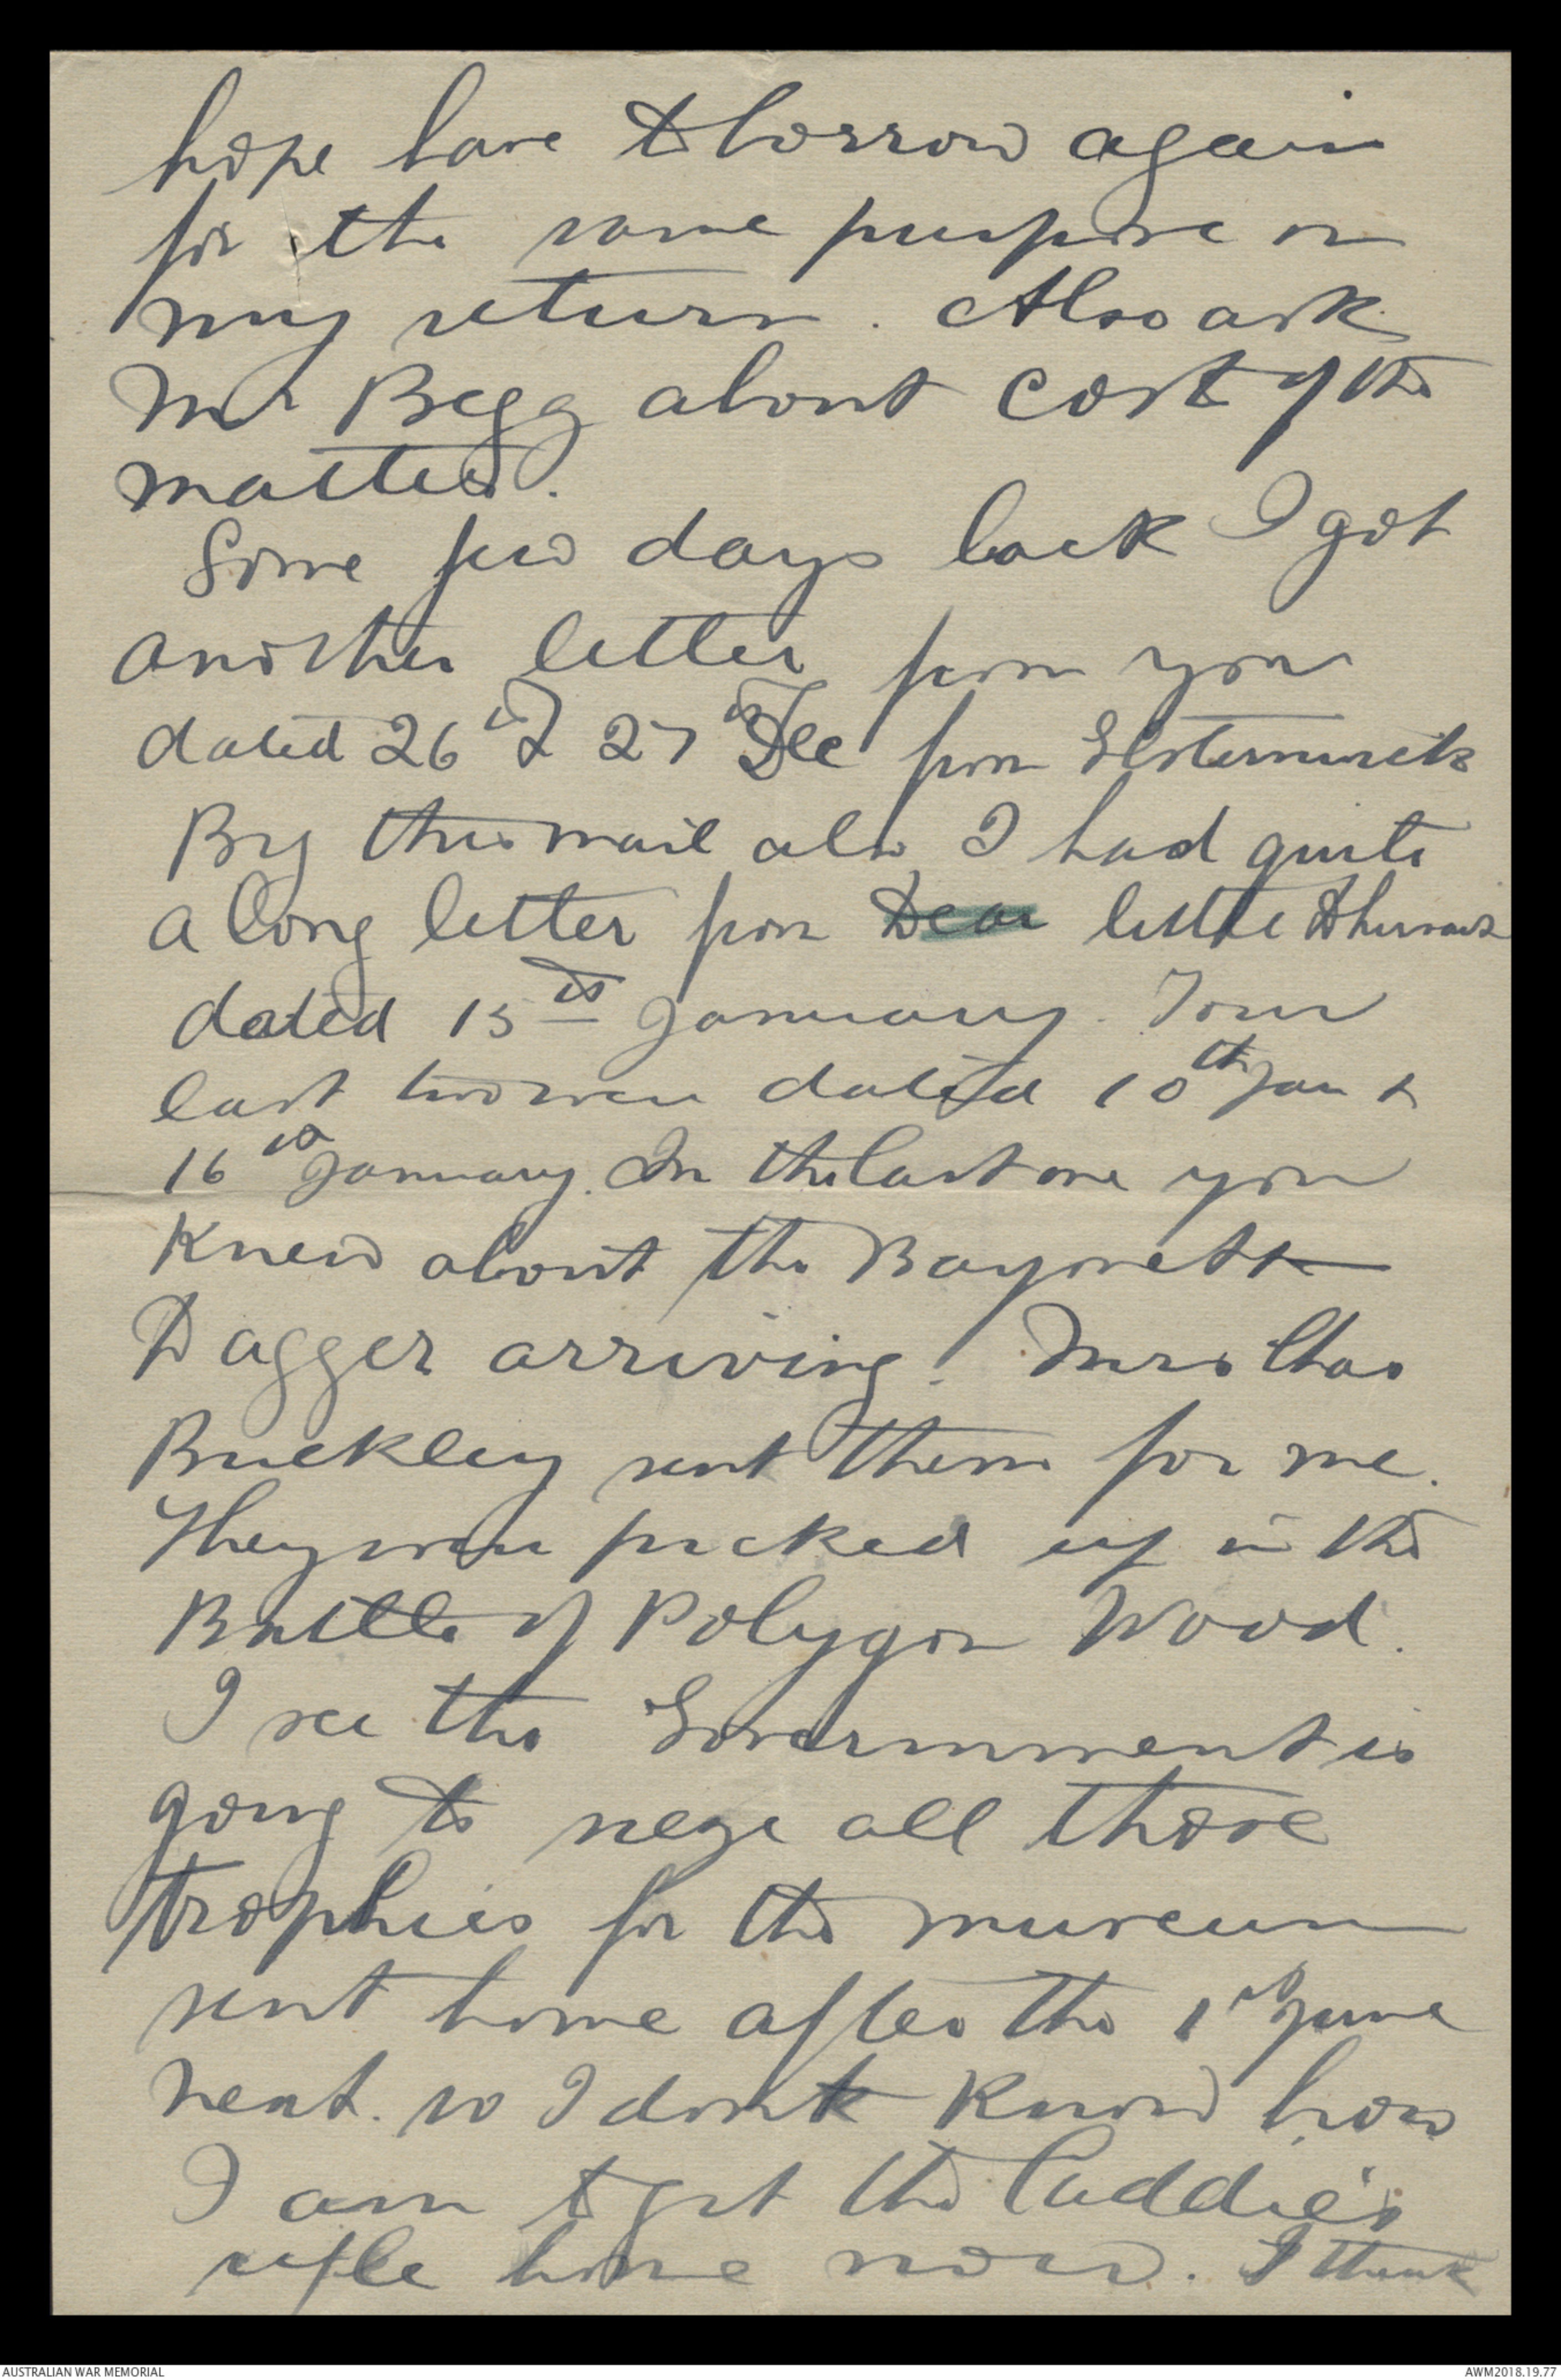 hope have to borrow again
for the same purpose on
my return. Also ask
Mr Begg about cost of the
matter.
Some few days back I got
another letter from you
dated 26th & 27th Dec from Elsternwick
By this mail also I had quite
a long letter from Dear little
dated 15th January. Your
last two were dated 10th Jan &
16th January. In the last one you
knew about the Bayonet &
Dagger arriving. Mrs Chas
Buckley sent them for me.
They were picked up in the
Battle of Polygon Wood.
I see the Government is
going to seize all those
trophies for the museum
sent home after the 1st June
next. so I dont know how
I am to get the Laddie's
rifle home now. I think
AUSTRALIAN WAR MEMORIAL
AWM2018.19.77